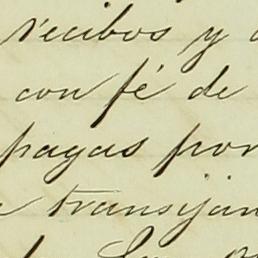 recibos y
con fé de
pagas por
transijan